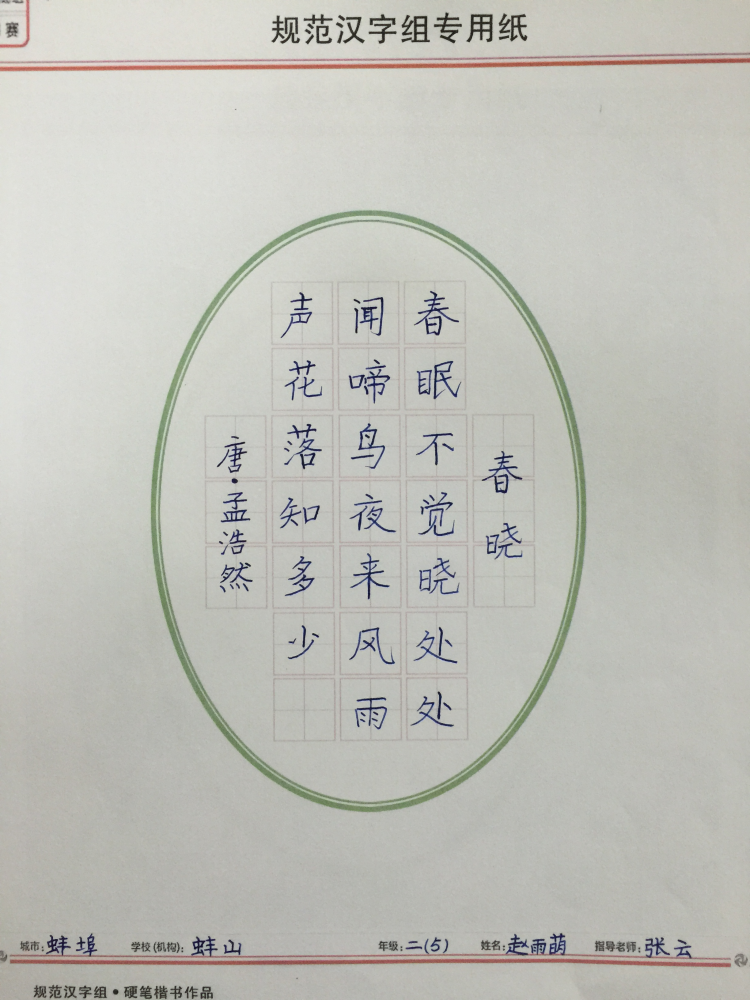 赛
规范汉字组专用纸
春晓
春眠不觉晓处处
闻啼鸟夜来风雨
声花落知多少
唐·孟浩然
城市:蚌埠 学校(机构):蚌山 年级:二(5) 姓名:赵雨萌 指导老师:张云
规范汉字组·硬笔楷书作品